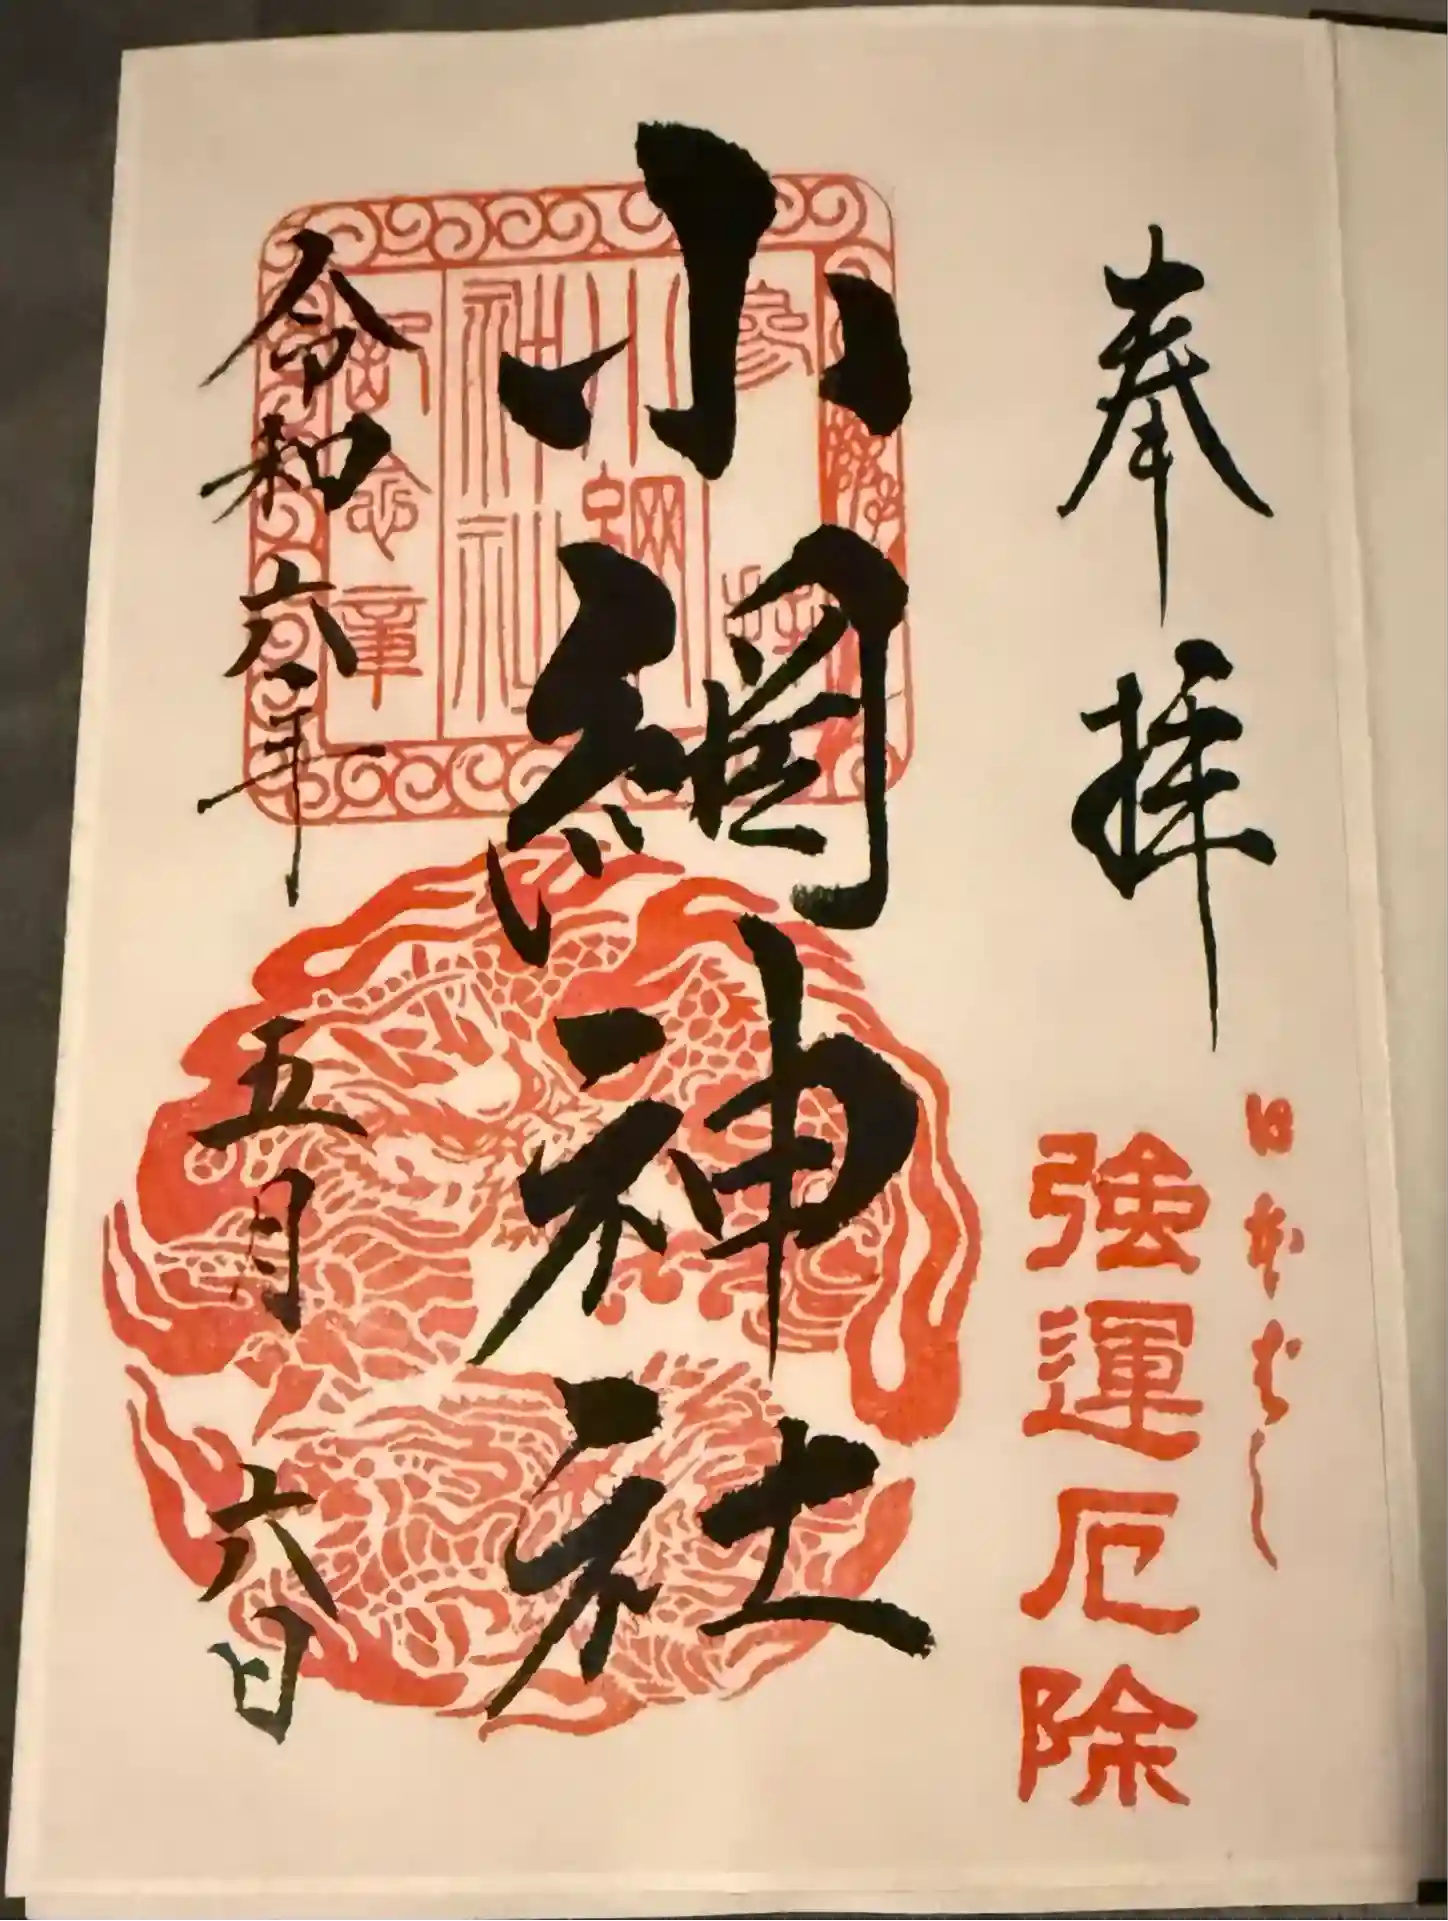 奉拝
日本ばし
強運厄除
小網神社
参拝
小網神社
記念章
令和六年五月六日